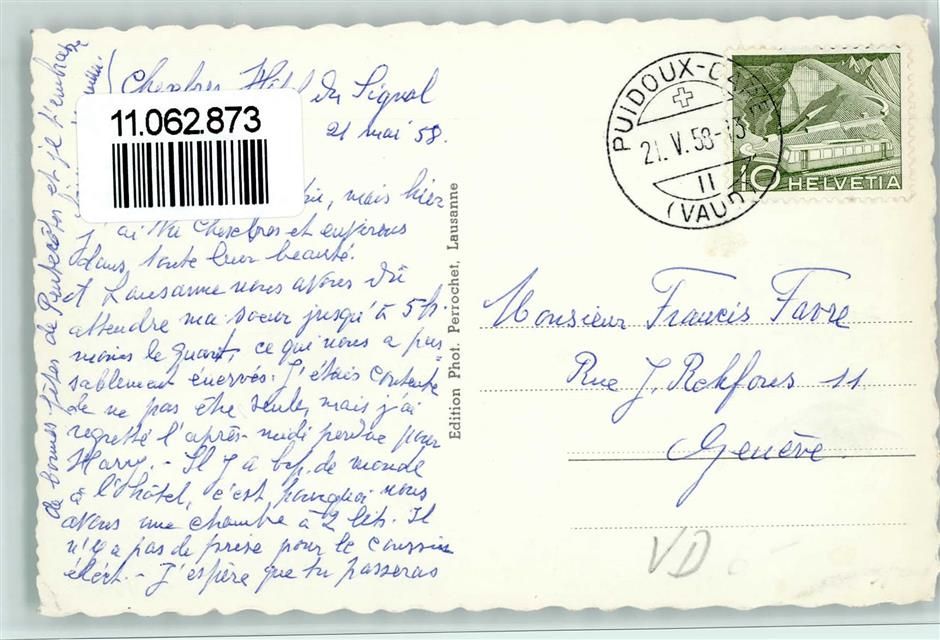 Chexbres Hôtel du Signal
21 mai 58.
11.062.873
mais hier
j'ai vu Chexbres et environs
dans toute leur beauté.
A Lausanne nous avons dû
attendre ma soeur jusqu'à 5h.
moins le quart, ce qui nous a pas-
sablement énervés. J'étais contente
de ne pas être seule, mais j'ai
regretté l'après-midi perdue pour
Harry. - Il y a bcp. de monde
à l'hôtel, c'est pourquoi nous
avons une chambre à 2 lits. Il
n'y a pas de prise pour le coussin
élect. - J'espère que tu passeras
de bonnes fêtes de Pentecôtes et je t'embrasse
Edition Phot. Perrochet, Lausanne
PUIDOUX-
21.V.58-13
11
(VAUD)
10 HELVETIA
Monsieur Francis Favre
Rue J. Rokfous 11
Genève
VD